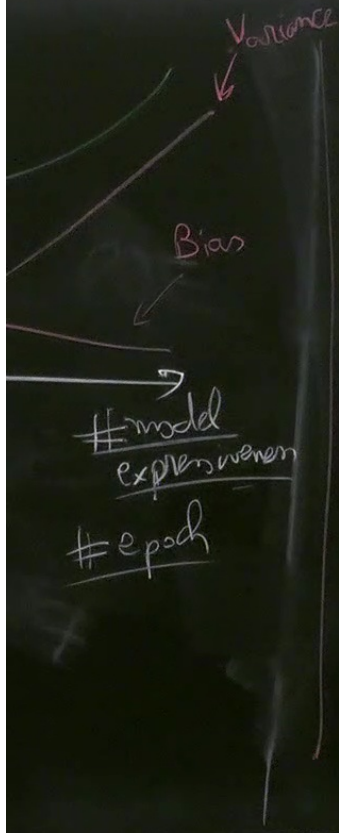 Variance
Bias
#model
expressiveness
#epoch